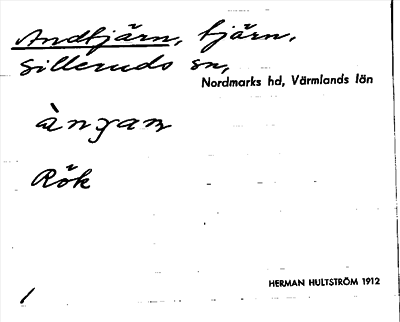 Andtjärn, tjärn,
Silleruds sn,
Nordmarks hd, Värmlands län
Rök
HERMAN HULTSTRÖM 1912